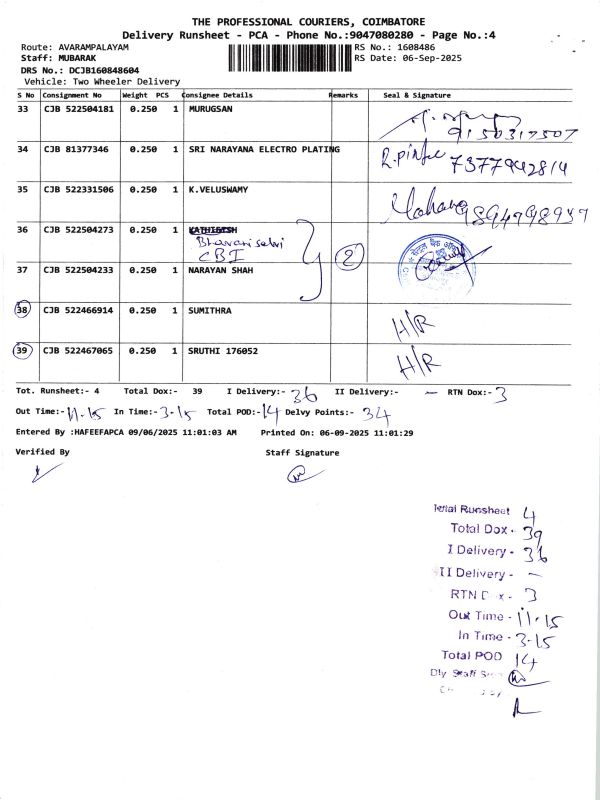 THE PROFESSIONAL COURIERS, COIMBATORE
Delivery Runsheet - PCA - Phone No.:9047080280 - Page No.:4
Route: AVARAMPALAYAM RS No.: 1608486
Staff: MUBARAK RS Date: 06-Sep-2025
DRS No.: DCJB160848604
Vehicle: Two Wheeler Delivery
S No Consignment No Weight PCS Consignee Details Remarks Seal & Signature
33 CJB 522504181 0.250 1 MURUGSAN
9150317507
34 CJB 81377346 0.250 1 SRI NARAYANA ELECTRO PLATING
7377942814
35 CJB 522331506 0.250 1 K.VELUSWAMY
9894798937
36 CJB 522504273 0.250 1
Bhavani selvi
CBI
2
37 CJB 522504233 0.250 1 NARAYAN SHAH
38 CJB 522466914 0.250 1 SUMITHRA H/R
39 CJB 522467065 0.250 1 SRUTHI 176052 H/R
Tot. Runsheet:- 4 Total Dox:- 39 I Delivery:- 36 II Delivery:- — RTN Dox:- 3
Out Time:- 11.15 In Time:- 3.15 Total POD:- 14 Delvy Points:- 34
Entered By :HAFEEFAPCA 09/06/2025 11:01:03 AM Printed On: 06-09-2025 11:01:29
Verified By Staff Signature
Total Runsheet 4
Total Dox - 39
I Delivery - 36
II Delivery - —
RTN D x - 3
Out Time - 11.15
In Time - 3.15
Total POD 14
Dly Staff